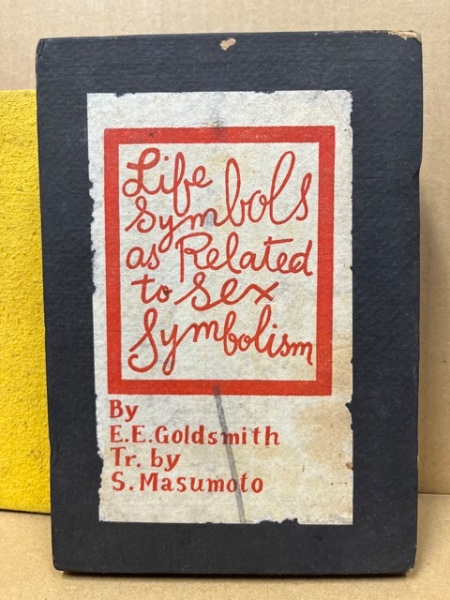 Life
Symbols
as Related
to Sex
Symbolism
By
E.E.Goldsmith
Tr. by
S. Masumoto